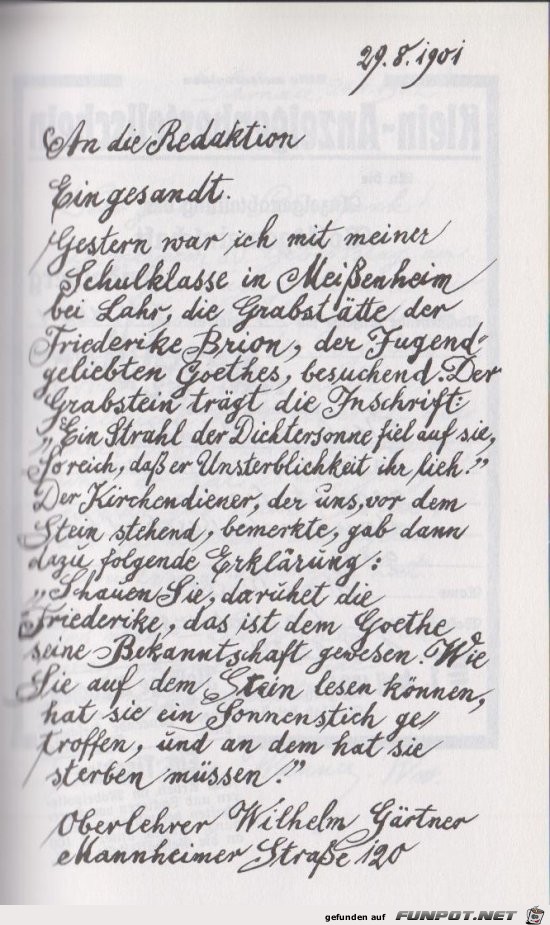 29.8.1901
An die Redaktion
Eingesandt.
Gestern war ich mit meiner
Schulklasse in Meißenheim
bei Lahr, die Grabstätte der
Friederike Brion, der Jugend-
geliebten Goethes, besuchend. Der
Grabstein trägt die Inschrift:
„Ein Strahl der Dichtersonne fiel auf sie,
So reich, daß er Unsterblichkeit ihr lieh."
Der Kirchendiener, der uns, vor dem
Stein stehend, bemerkte, gab dann
dazu folgende Erklärung:
„Schauen Sie, da ruhet die
Friederike, das ist dem Goethe
seine Bekanntschaft gewesen. Wie
Sie auf dem Stein lesen können,
hat sie ein Sonnenstich ge-
troffen, und an dem hat sie
sterben müssen."
Oberlehrer Wilhelm Gärtner
Mannheimer Straße 120
Klein-Anzeigenbestellschein
An die
gefunden auf FUNPOT.NET